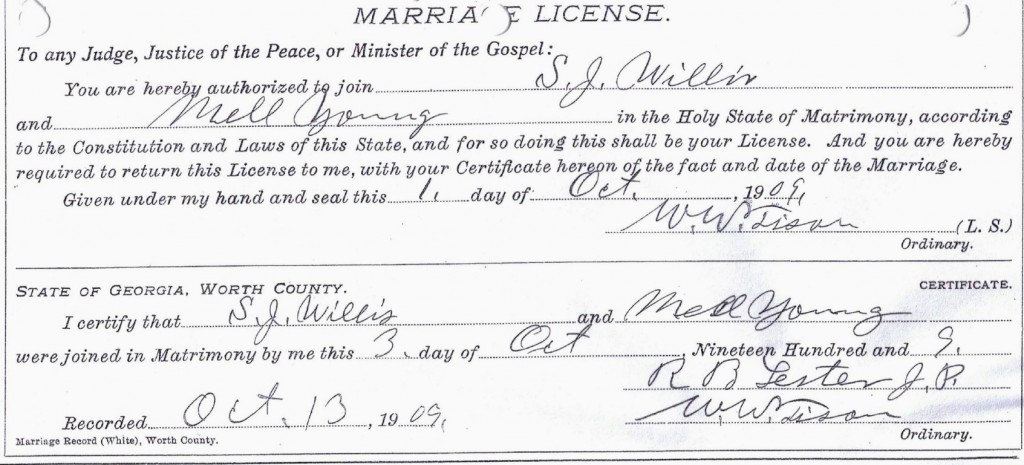 MARRIA E LICENSE.
To any Judge, Justice of the Peace, or Minister of the Gospel:
You are hereby authorized to join S. J. Willis
and Mell Young in the Holy State of Matrimony, according
to the Constitution and Laws of this State, and for so doing this shall be your License. And you are hereby
required to return this License to me, with your Certificate hereon of the fact and date of the Marriage.
Given under my hand and seal this 1. day of Oct. , 1909.
W. W. Tison (L. S.)
Ordinary.
STATE OF GEORGIA, WORTH COUNTY. CERTIFICATE.
I certify that S. J. Willis and Mell Young
were joined in Matrimony by me this 3. day of Oct , Nineteen Hundred and 9.
R B Lester J. P.
Recorded Oct. 13 , 1909. W. W. Tison
Ordinary.
Marriage Record (White), Worth County.